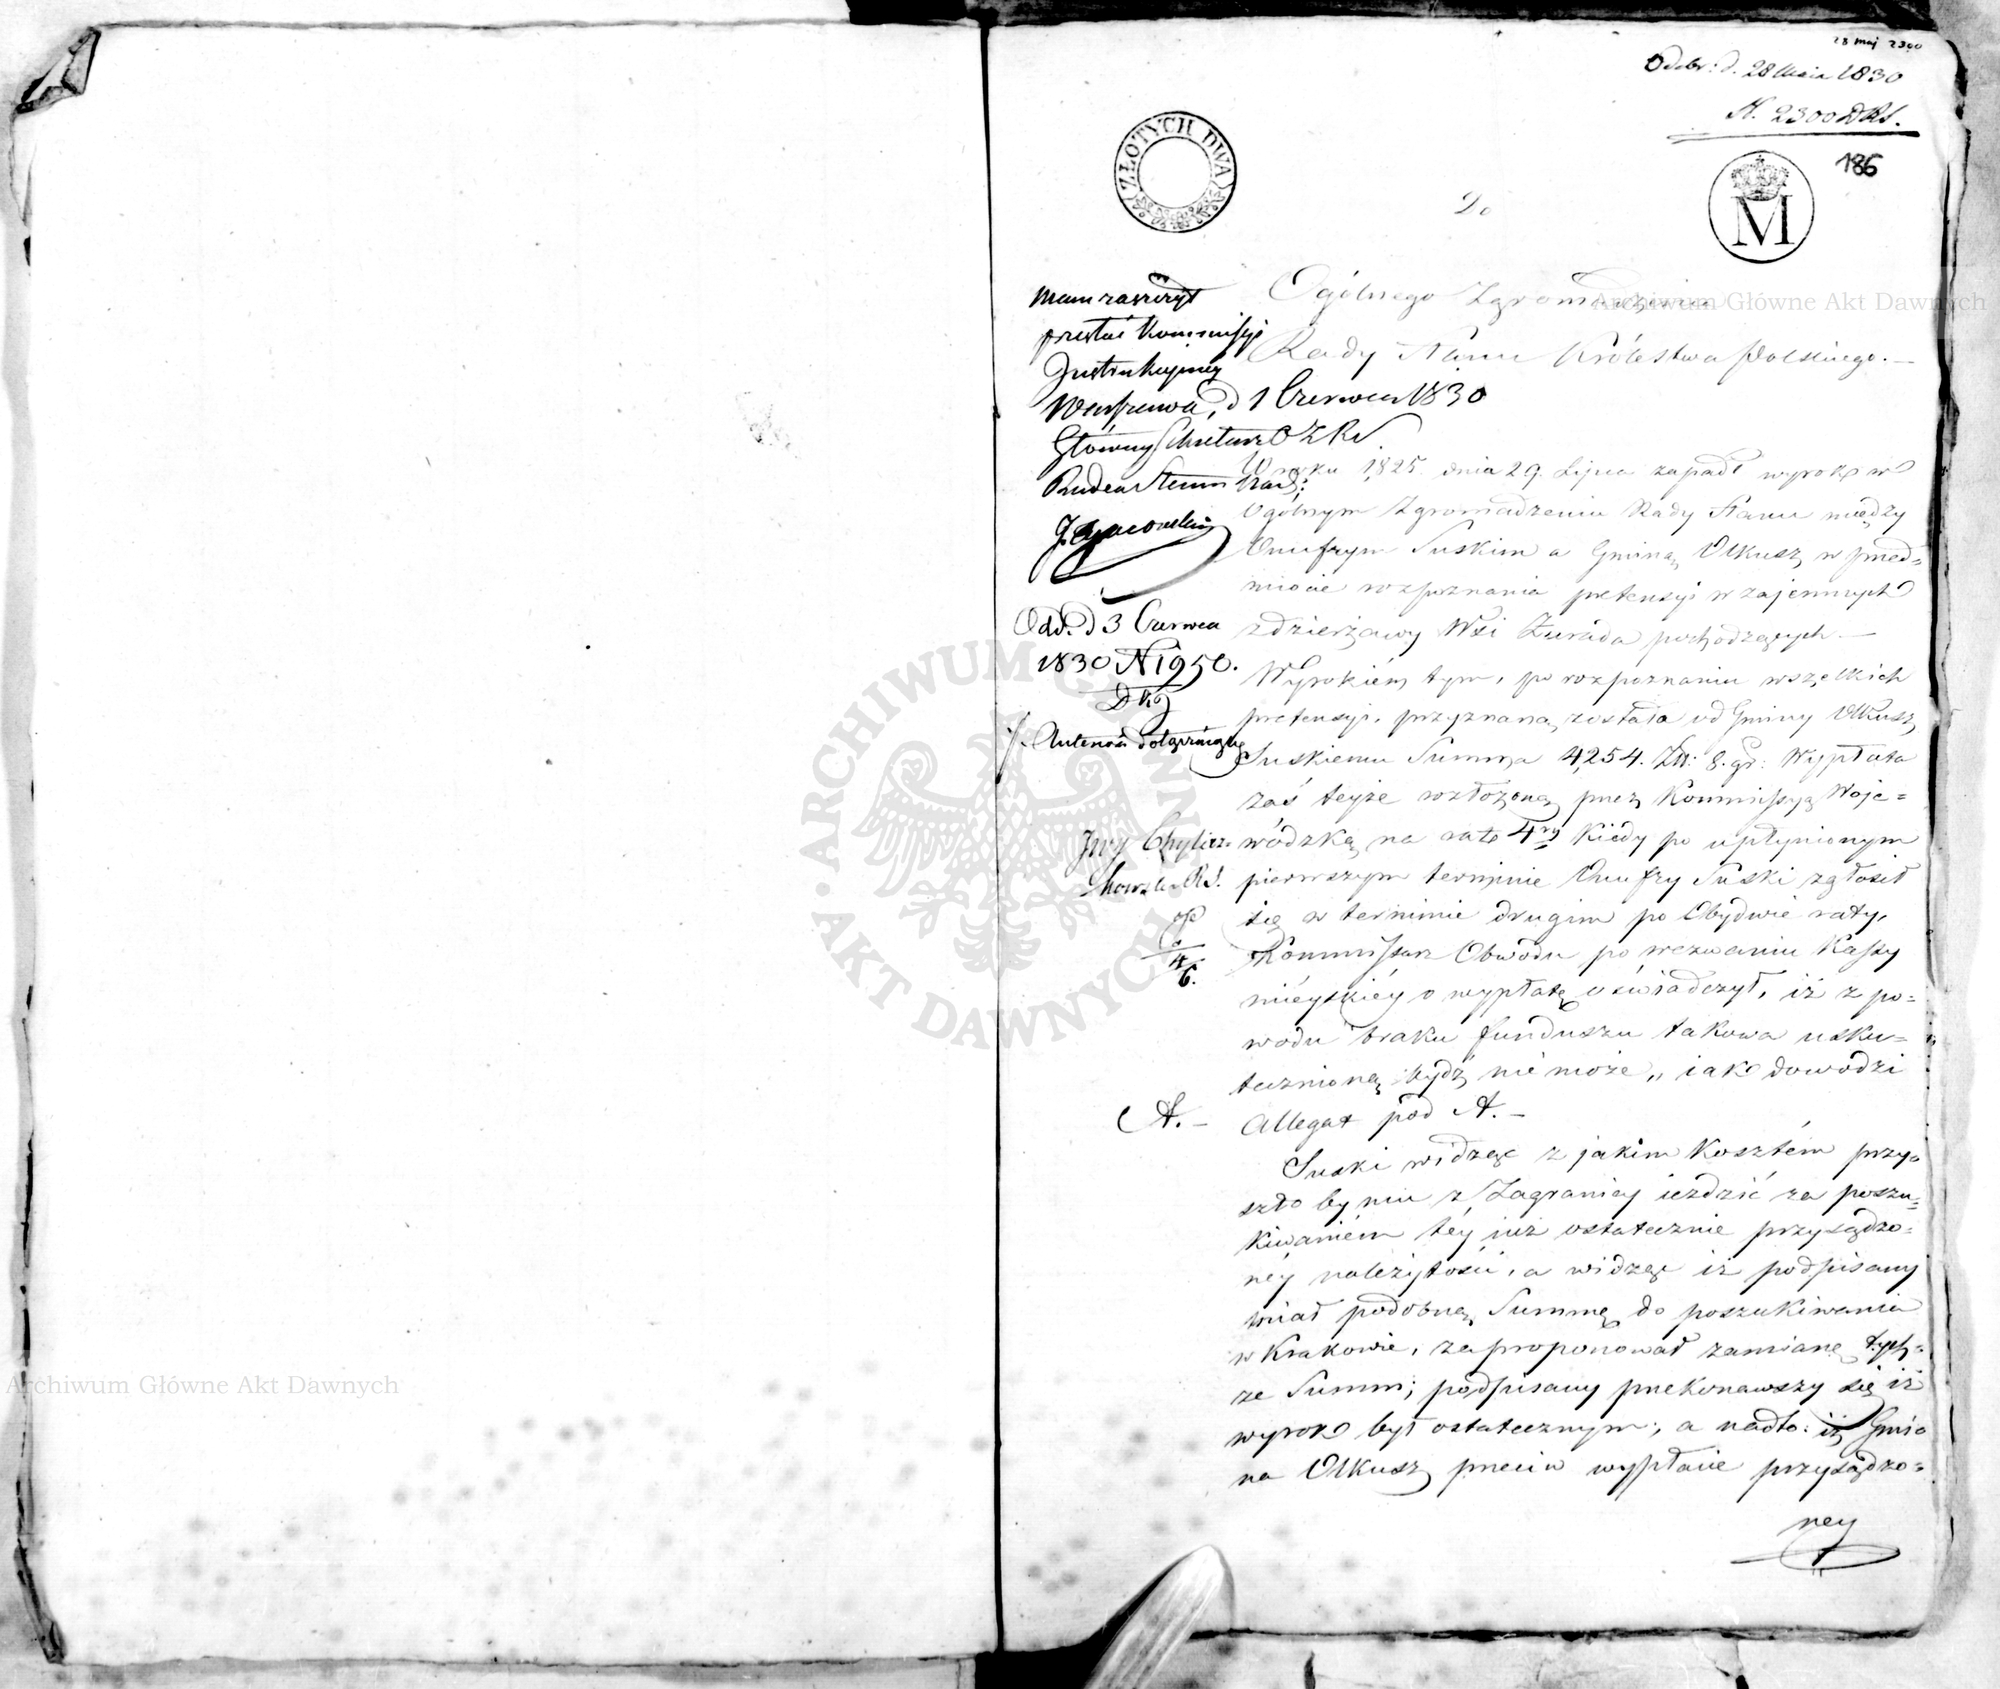 28 maj 2300
Odebr: d. 28 Maia 1830
N. 2300 DRS.
186
ZŁOTYCH DWA
M
Do
Ogólnego Zgromadzenia
Rady Stanu Królestwa Polskiego. —
Mam zaszczyt
przesłać Kommissyi
Instrukcyiney
Warszawa, d 1 Czerwca 1830
Główny Sekretarz OZRS.
Radca Stanu Nad:
Odd. d 3 Czerwca
1830 N 1950.
A. —
W roku 1825 dnia 29. Lipca zapadł wyrok w
Ogólnym Zgromadzeniu Rady Stanu między
Onufrym Suskim a Gminą Olkusz w przed=
miocie rozpoznania pretensyi wzajemnych
z dzierżawy Wsi Żurada pochodzących. —
Wyrokiem tym, po rozpoznaniu wszelkich
pretensyi, przyznaną została od Gminy Olkusz
Suskiemu Summa 4,254. Zł: 8. gr: Wypłata
zaś teyże rozłożoną przez Kommissyą Woje=
wódzką na rat 4ry Kiedy po upłynionym
pierwszym terminie Onufry Suski zgłosił
się w terminie drugim po Obydwie raty,
Kommissarz Obwodu po wezwaniu Kassy
mieyskiéy o wypłatę oświadczył, iż z po=
wodu braku funduszu takowa usku=
tecznioną bydź nie może„ iak dowodzi
Allegat pod A. —
Suski widząc z jakim Kosztém przy=
szło by mu z Zagranicy iezdzić za poszu=
kiwaniém téy iuż ostatecznie przysądzo=
néy należytości, a widząc iż podpisany
miał podobną Summę do poszukiwania
w Krakowie, zaproponował zamianę tych=
że Summ; podpisany przekonawszy się iż
wyrok był ostatecznym, a nadto: iż Gmi=
na Olkusz przeciw wypłacie przysądzo=
ney
Archiwum Główne Akt Dawnych
Archiwum Główne Akt Dawnych
ARCHIWUM GŁÓWNE AKT DAWNYCH